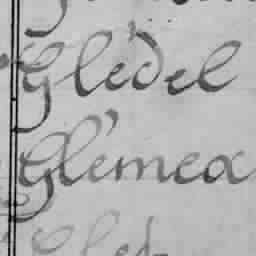 Glédel
Glémea